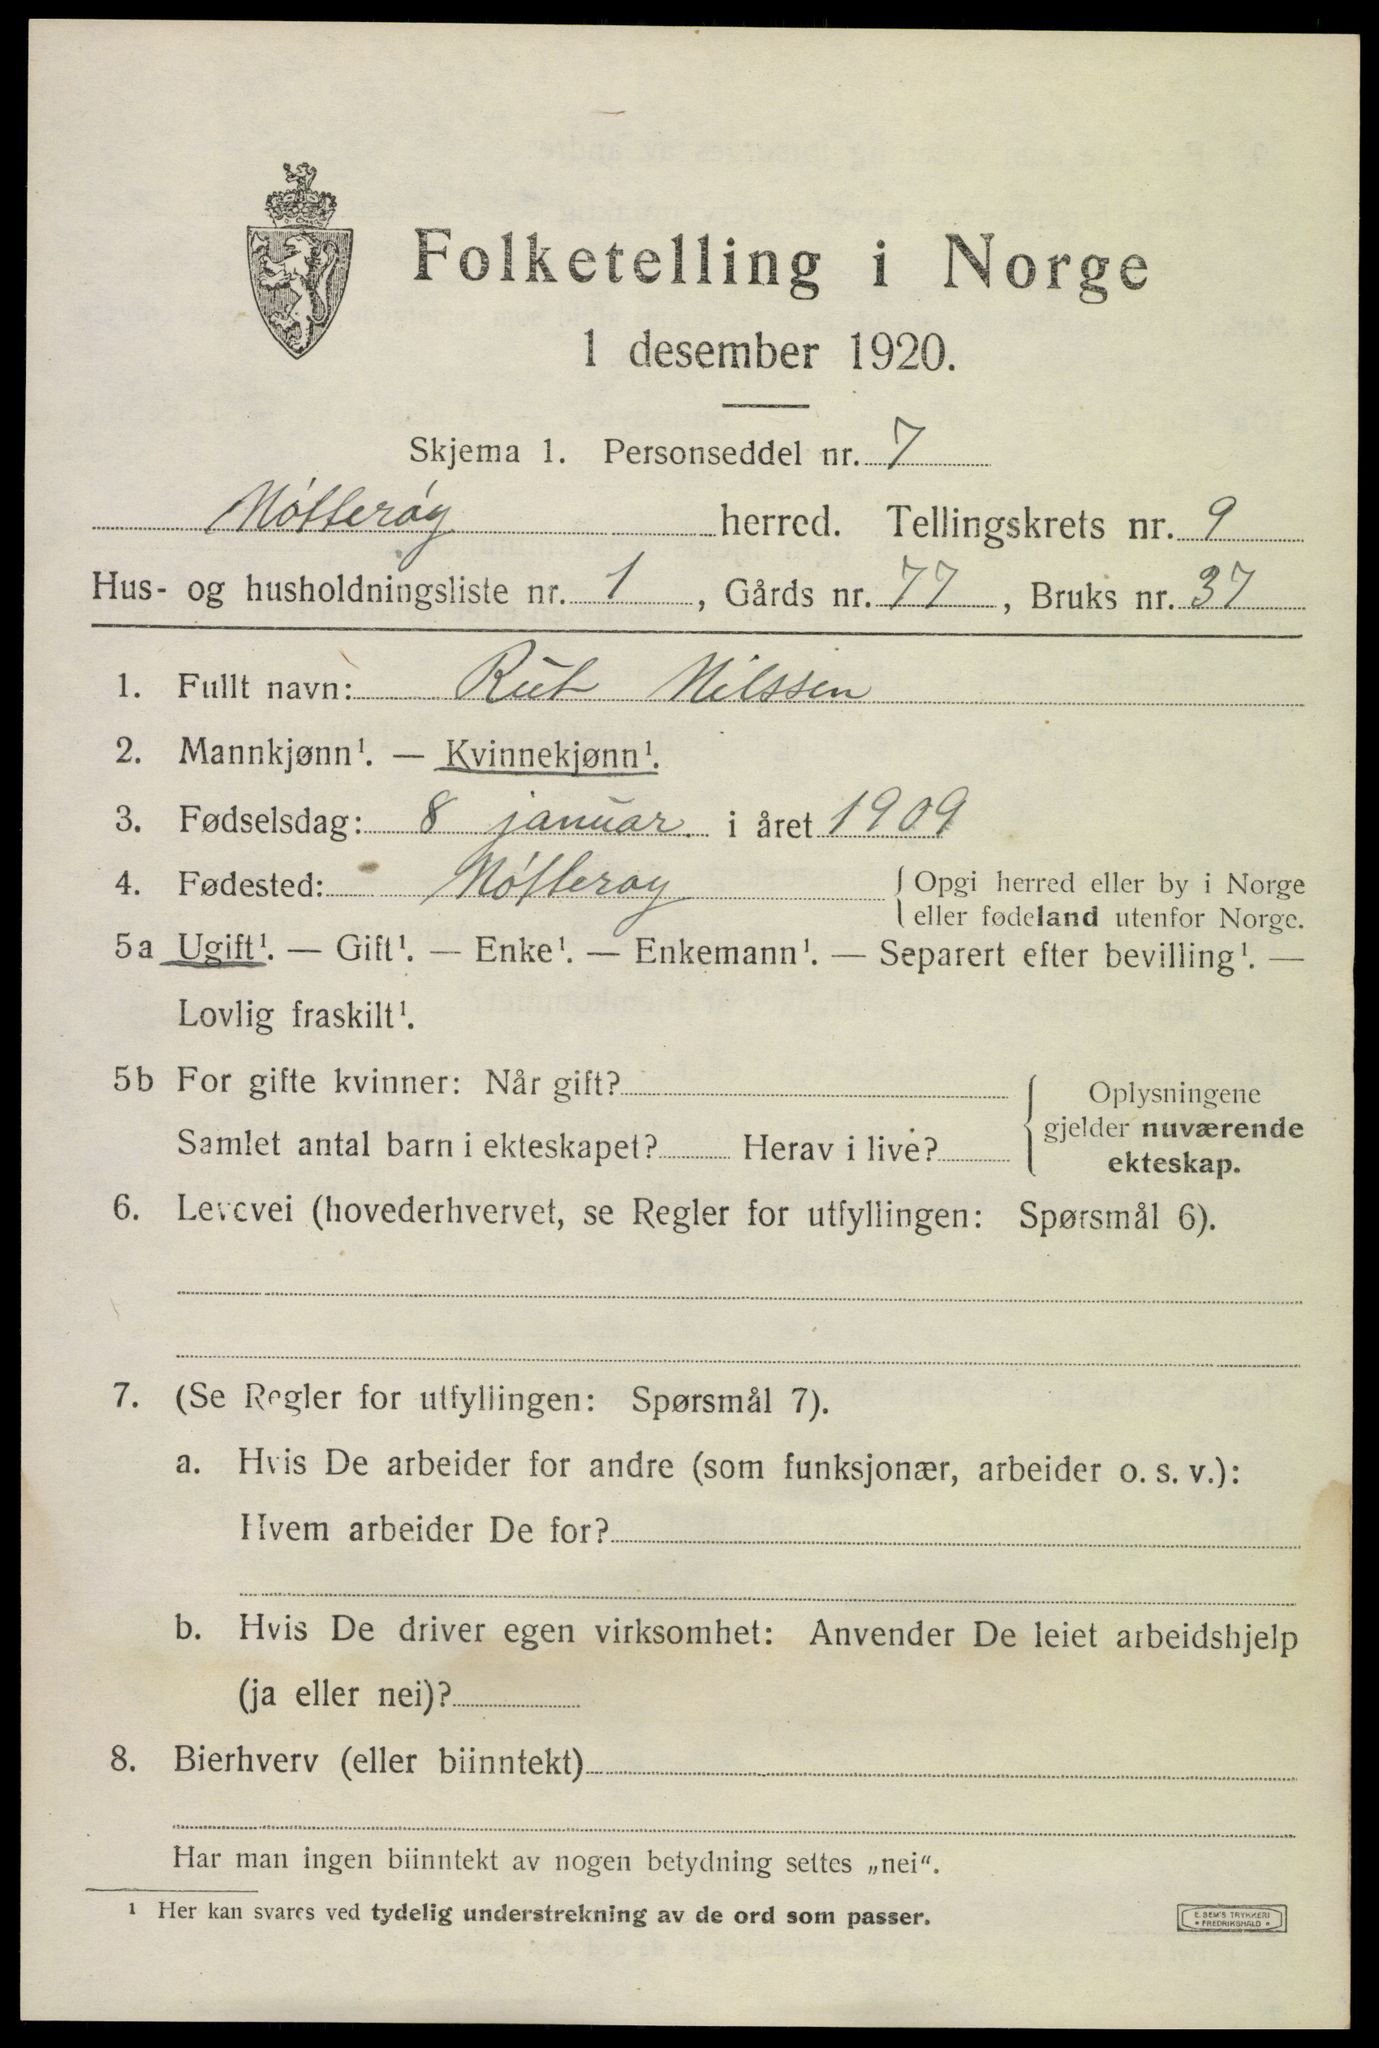 Folketelling i Norge
1 desember 1920.
Skjema 1. Personseddel nr. 7
Nøtterøy herred. Tellingskrets nr. 9
Hus- og husholdningsliste nr. 1, Gårds nr. 77, Bruks nr. 37
1. Fullt navn: Rut Nilssen
2. Mannkjønn¹. — Kvinnekjønn¹.
3. Fødselsdag: 8 januar i året 1909
4. Fødested: Nøtterøy { Opgi herred eller by i Norge
eller fødeland utenfor Norge.
5a Ugift¹. — Gift¹. — Enke¹. — Enkemann¹. — Separert efter bevilling¹. —
Lovlig fraskilt¹.
5b For gifte kvinner: Når gift?
Samlet antal barn i ekteskapet? Herav i live?
{ Oplysningene
gjelder nuværende
ekteskap.
6. Levevei (hovederhvervet, se Regler for utfyllingen: Spørsmål 6).
7. (Se Regler for utfyllingen: Spørsmål 7).
a. Hvis De arbeider for andre (som funksjonær, arbeider o. s. v.):
Hvem arbeider De for?
b. Hvis De driver egen virksomhet: Anvender De leiet arbeidshjelp
(ja eller nei)?
8. Bierhverv (eller biinntekt)
Har man ingen biinntekt av nogen betydning settes „nei“.
¹ Her kan svares ved tydelig understrekning av de ord som passer.
E. SEM'S TRYKKERI
FREDRIKSHALD